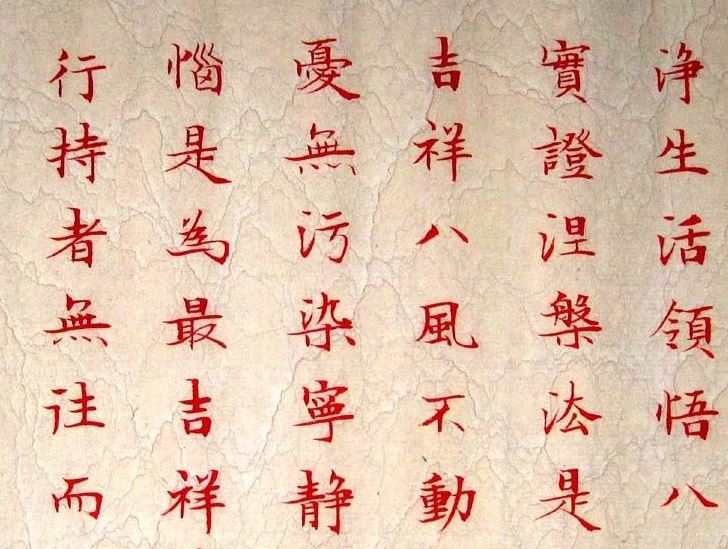 浄生活領悟八
實證涅槃法是
吉祥八風不動
憂無污染寧静
惱是為最吉祥
行持者無往而